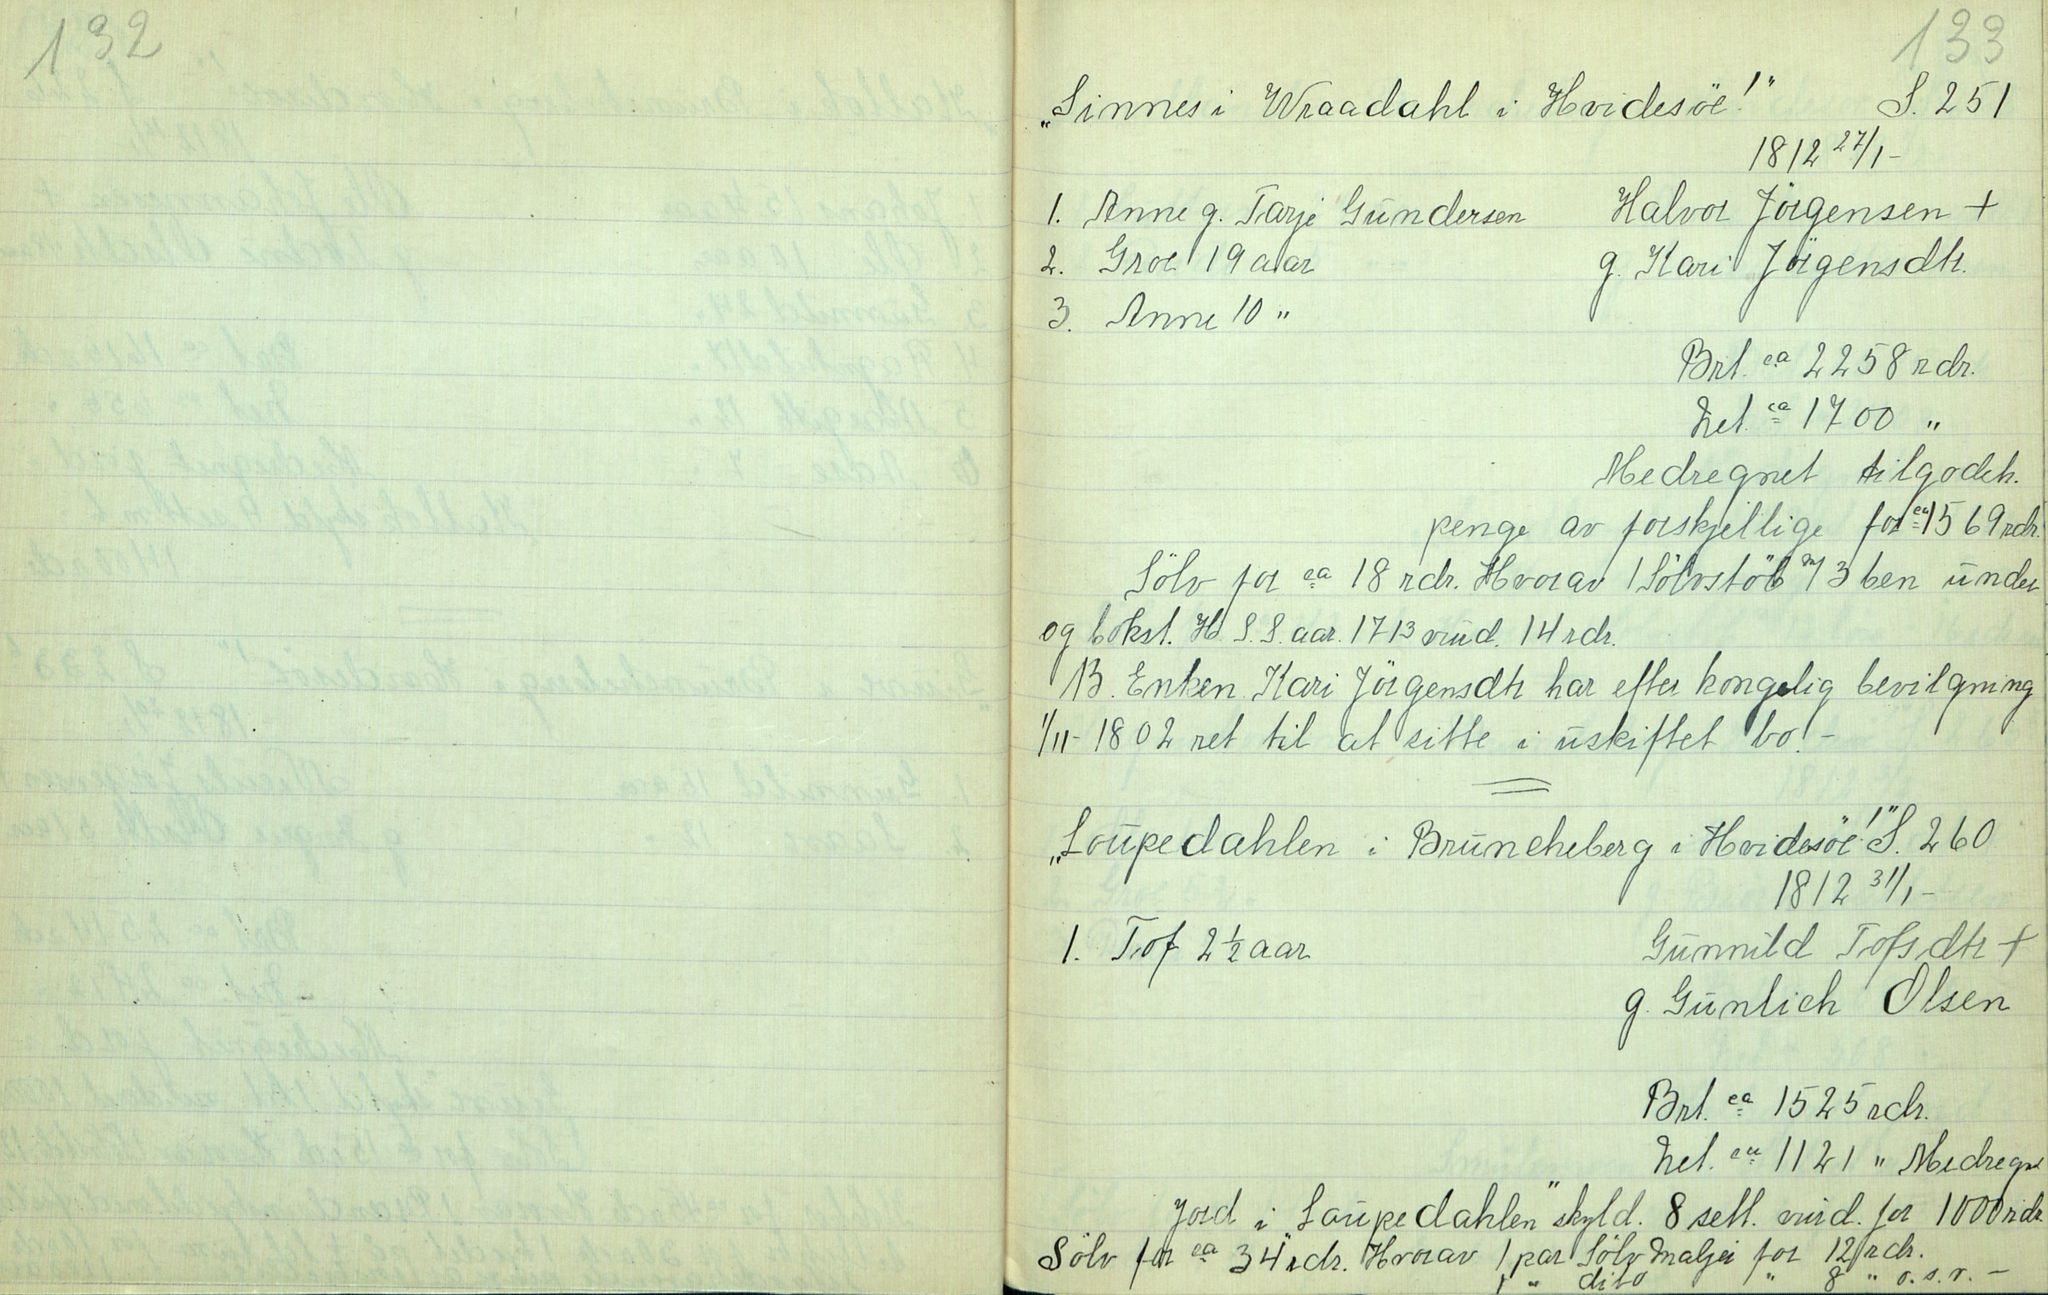 132
133
„Sinnes i Wraadahl i Hvidesöe!" S. 251
1812 27/1-
1. Anne g. Tarje Gundersen Halvor Jörgensen +
2. Groe 19 aar g. Kari Jörgensdtr.
3. Anne 10 "
Brt. ca 2258 rdr.
Net. ca 1700 "
Medregnet tilgodeh.
penge av forskjellige for ca 1569 rdr.
Sölv for ca 18 rdr. Hvorav 1 Sölvstöb m/ 3 ben under
og bokst. H. S. S. aar. 1713 vurd. 14 rdr.
NB. Enken Kari Jörgensdtr har efter kongelig bevilgning
1/11- 1802 ret til at sitte i uskiftet bo! -
„Loupedahlen i Bruncheberg i Hvidesöe!" S. 260
1812 31/1-
1. Tof 2 1/2 aar Gunnild Tofsdtr +
g. Gunlich Olsen
Brt. ca 1525 rdr.
Net. ca 1121 " Medregnet
Jord i „Loupedahlen" skyld. 8 sett. vurd. for 1000 rdr.
Sölv for ca 34 rdr. Hvorav 1 par Sölv Maljer for 12 rdr.
1 " dito " 8 " o.s.v. -